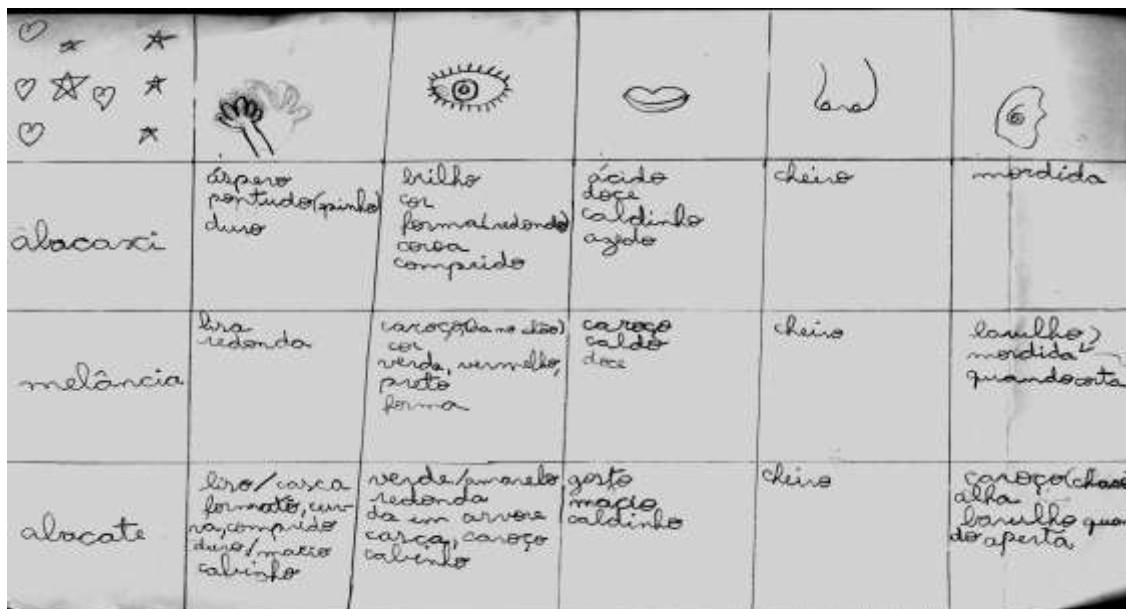 áspero
pontudo (espinho)
duro
brilho
cor
forma (redondo)
coroa
comprido
ácido
doce
caldinho
azedo
cheiro
mordida
abacaxi
lisa
redonda
caroço, (da no chão)
cor
verde, vermelho,
preto
forma
caroço
caldo
doce
cheiro
barulho
mordida
quando corta
melância
liso/casca
formato, cur-
va, comprido
duro/macio
cabinho
verde/amarelo
redonda
da em arvore
casca, caroço
cabinho
gosto
macio
caldinho
cheiro
caroço
alha
barulho quan
do aperta
abacate